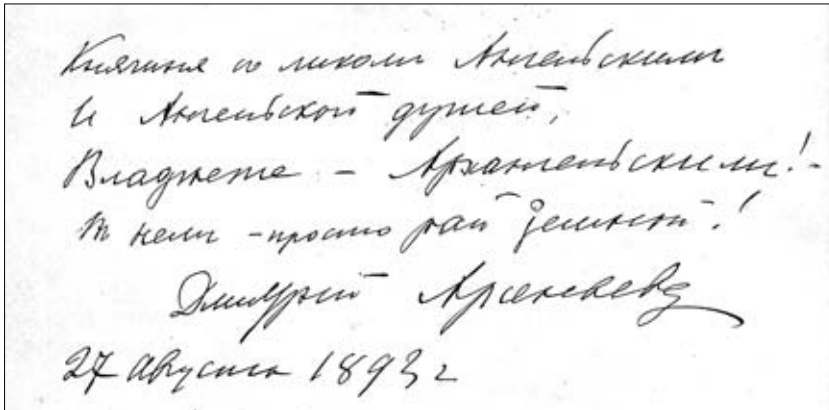 Княгиня со ликомъ Ангельскимъ
И Ангельской душей,
Владѣете - Архангельскимъ! -
Въ немъ - просто рай земной!
Дмитрий Арсеньевъ
27 Августа 1893 г